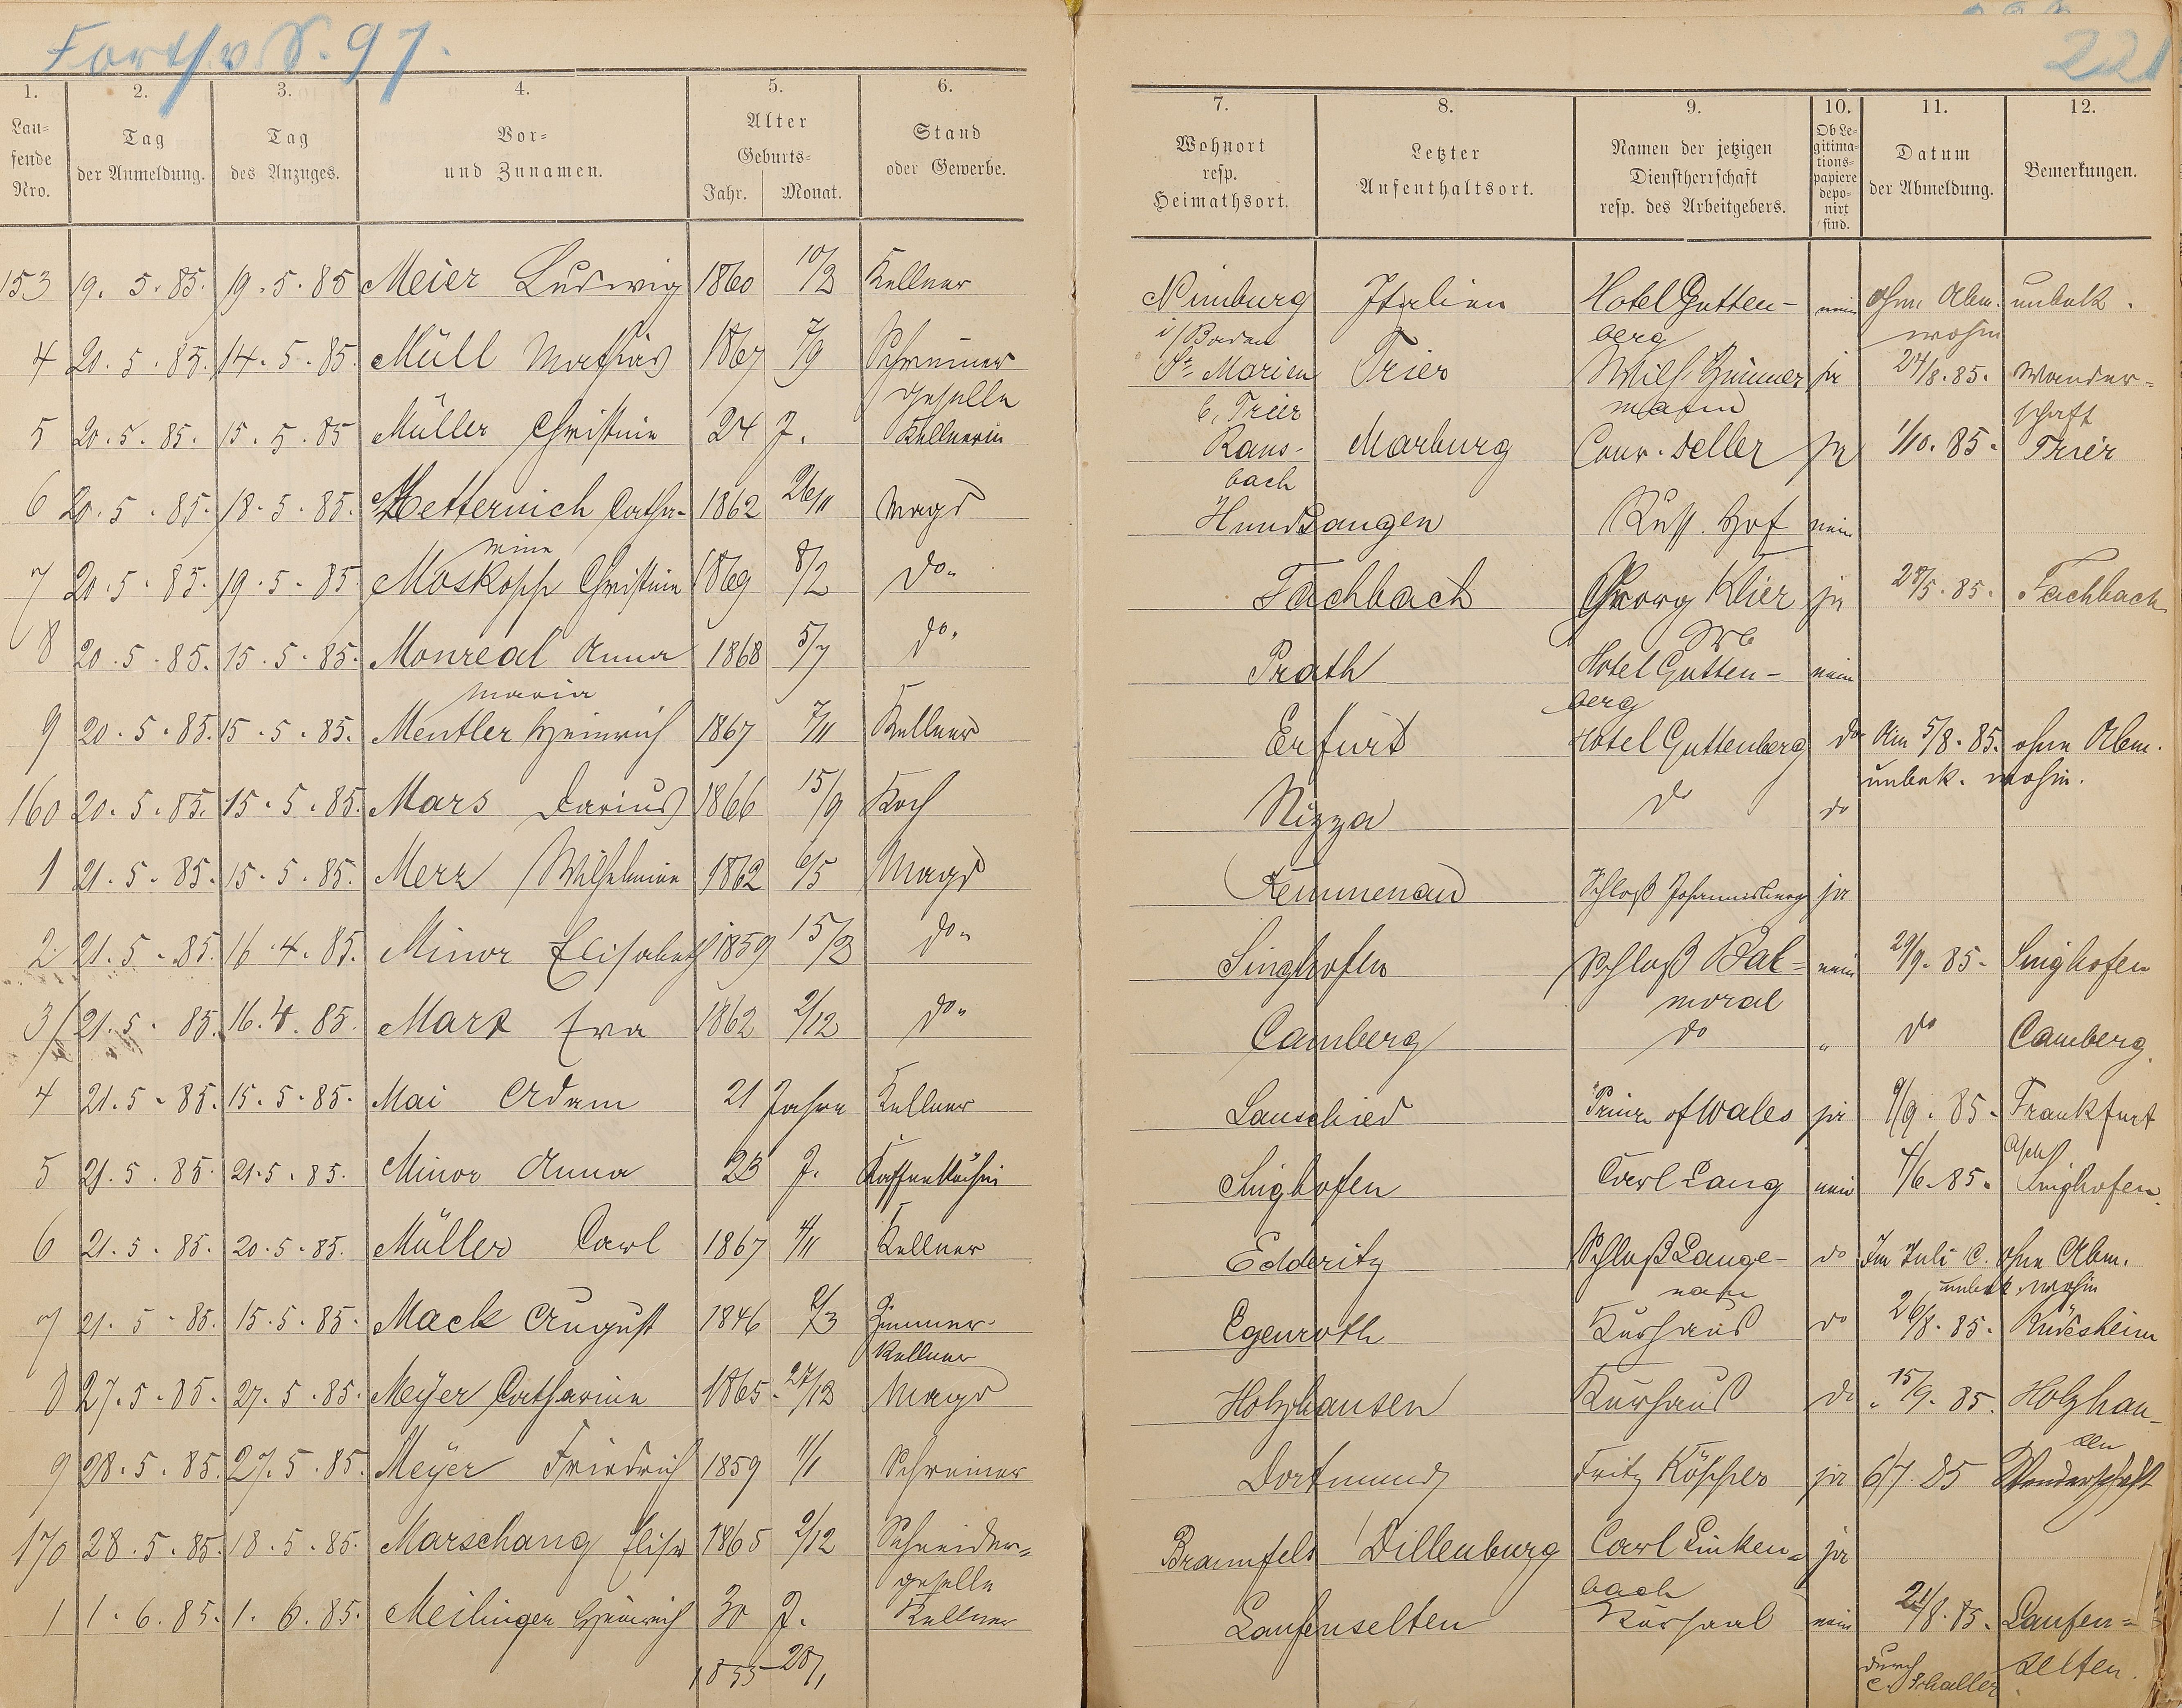 Forts. v. S. 97.
221
1. 2. 3. 4. 5. 6. 7. 8. 9. 10. 11. 12.
Lau=
fende
Nro.
Tag
der Anmeldung.
Tag
des Anzuges.
Vor=
und Zunamen.
Alter
Geburts=
Jahr. Monat.
Stand
oder Gewerbe.
Wohnort
resp.
Heimathsort.
Letzter
Aufenthaltsort.
Namen der jetzigen
Dienstherrschaft
resp. des Arbeitgebers.
Ob Le=
gitima=
tions=
papiere
depo=
nirt
sind.
Datum
der Abmeldung.
Bemerkungen.
153 19. 5. 85. 19. 5. 85 Meier Ludwig 1860 10/2 Kellner Nimburg Italien Hotel Gutten- nein ohne Abm. unbek.
i/Baden berg wohin
4 20. 5. 85. 14. 5. 85. Müll Mathias 1867 7/9 Schreiner St. Marien Trier Wilh. Zimmer ja 24/8. 85. Wander=
geselle b. Trier mann schaft
5 20. 5. 85. 15. 5. 85 Müller Christine 24 J. Kellnerin Rans- Marburg Conr. Seller ja 1/10. 85. Trier
bach
6 20. 5. 85. 18. 5. 85. Metternich Catha- 1862 26/11 Magd Hundsangen Russ. Hof nein
rine
7 20. 5. 85. 19. 5. 85 Moskopp Christine 1869 8/2 do. Fachbach Georg Klier ja 28/5. 85. Fachbach
8 20. 5. 85. 15. 5. 85. Monreal Anna 1868 5/7 do. Prath Hotel Gutten- nein
Maria berg
9 20. 5. 85. 15. 5. 85. Mentler Heinrich 1867 7/11 Kellner Erfurt Hotel Guttenberg do Am 5/8. 85. ohne Abm.
unbek. wohin.
160 20. 5. 85. 15. 5. 85. Mars Darius 1866 15/9 Koch Nizza do do
1 21. 5. 85. 15. 5. 85. Merz Wilhelmine 1862 6/5 Magd Kemmenau Schloß Johannisberg ja
2 21. 5. 85. 16. 4. 85. Minor Elisabeth 1859 15/2 do. Singhofen Schloß Bal= nein 29/9. 85. Singhofen
moral
3 21. 5. 85. 16. 4. 85. Marx Eva 1862 2/12 do. Camberg do " do Camberg.
4 21. 5. 85. 15. 5. 85. Mai Adam 21 Jahre Kellner Lauschied Prinz of Wales ja 9/9. 85. Frankfurt
5 21. 5. 85. 21. 5. 85. Minor Anna 23 J. Kaffeeköchin Singhofen Carl Lang nein 4/6. 85. Singhofen.
6 21. 5. 85. 20. 5. 85. Müller Carl 1867 4/11 Kellner Edderitz Schloß Lange- do Im Juli c. ohne Abm.
nau unbek. wohin
7 21. 5. 85. 15. 5. 85. Mack August 1846 2/3 Zimmer- Egenroth Kurhaus do 26/8. 85. Rüdesheim
Kellner
8 27. 5. 85. 27. 5. 85. Meÿer Catharine 1865. 27/12 Magd Holzhausen Kurhaus do 15/9. 85. Holzhau-
sen
9 28. 5. 85. 27. 5. 85. Meÿer Friedrich 1859 1/1 Schreiner Dortmund Fritz Köppler ja 6/7. 85 Wanderschaft
170 28. 5. 85. 18. 5. 85. Marschang Elise 1865 2/12 Schneider= Braunfels Dillenburg Carl Linken= ja
geselle bach
1 1. 6. 85. 1. 6. 85. Meilinger Heinrich 30 J. Kellner Laufenselten Kursaal nein 21/8. 85. Laufen=
1855 28/1 durch selten.
C. Schaller